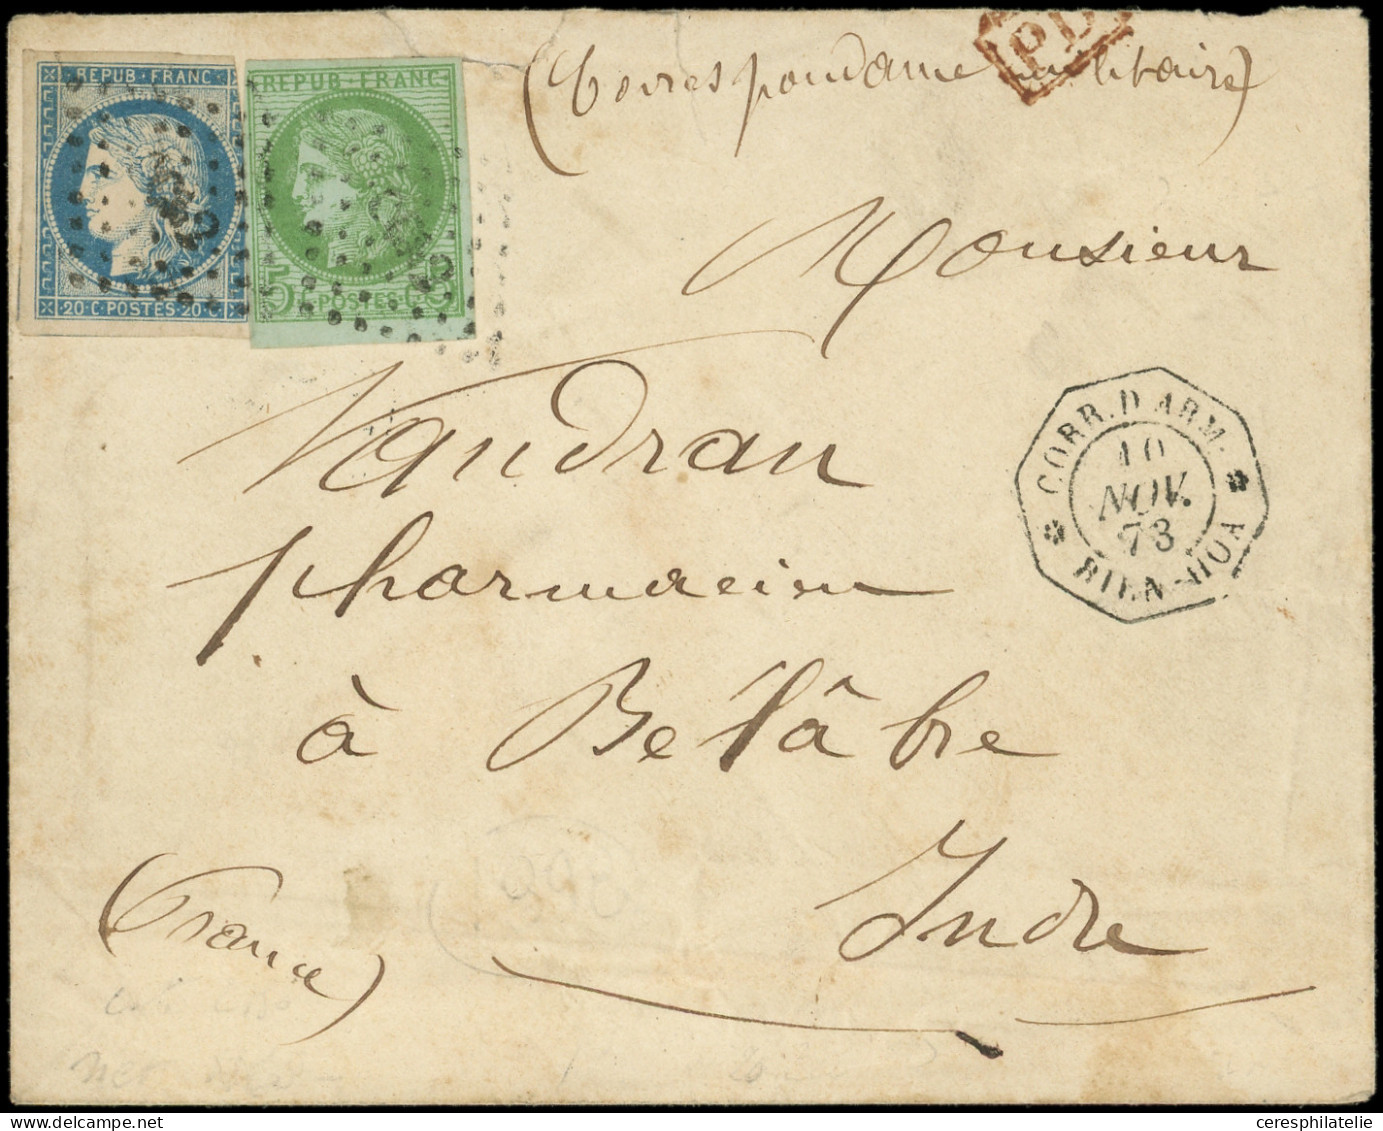 REPUB·FRANC
20·C·POSTES·20·C
REPUB·FRANC
5 C POSTES C 5
PD
(Correspondance militaire)
Monsieur
Vaudran
pharmacien
à Bélâbre
Indre
(France)
CORR. D ARM.
10
NOV.
73
BIEN-HOA
ceresphilatelie.com